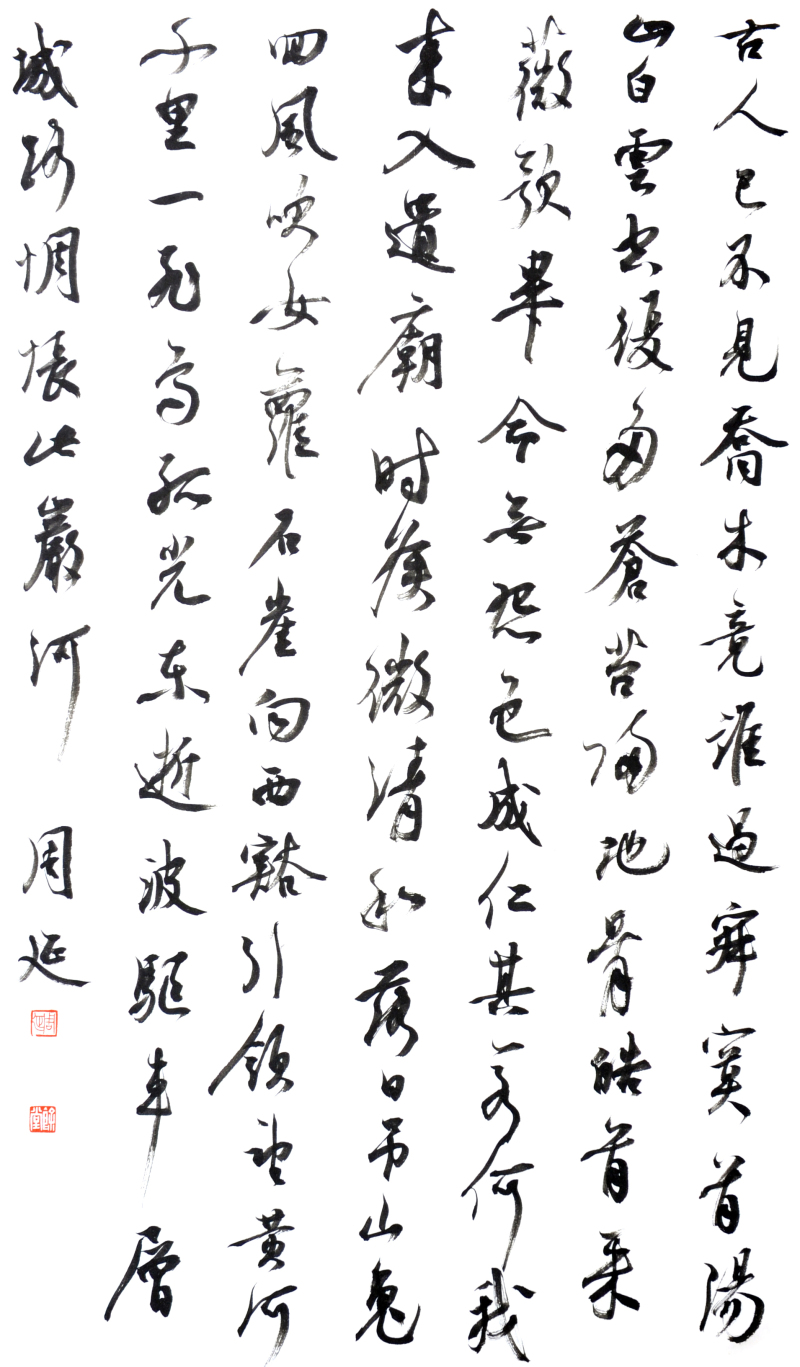 古人已不見喬木竟誰過寂寞首陽
山白雲空復多蒼苔歸地骨皓首采
薇歌畢命無怨色成仁其若何我
來入遺廟时候微清和落日吊山鬼
回風吹女蘿石崖向西豁引領望黃河
千里一飛鳥孤光東逝波驅車層
城路惆悵此巖阿 周延